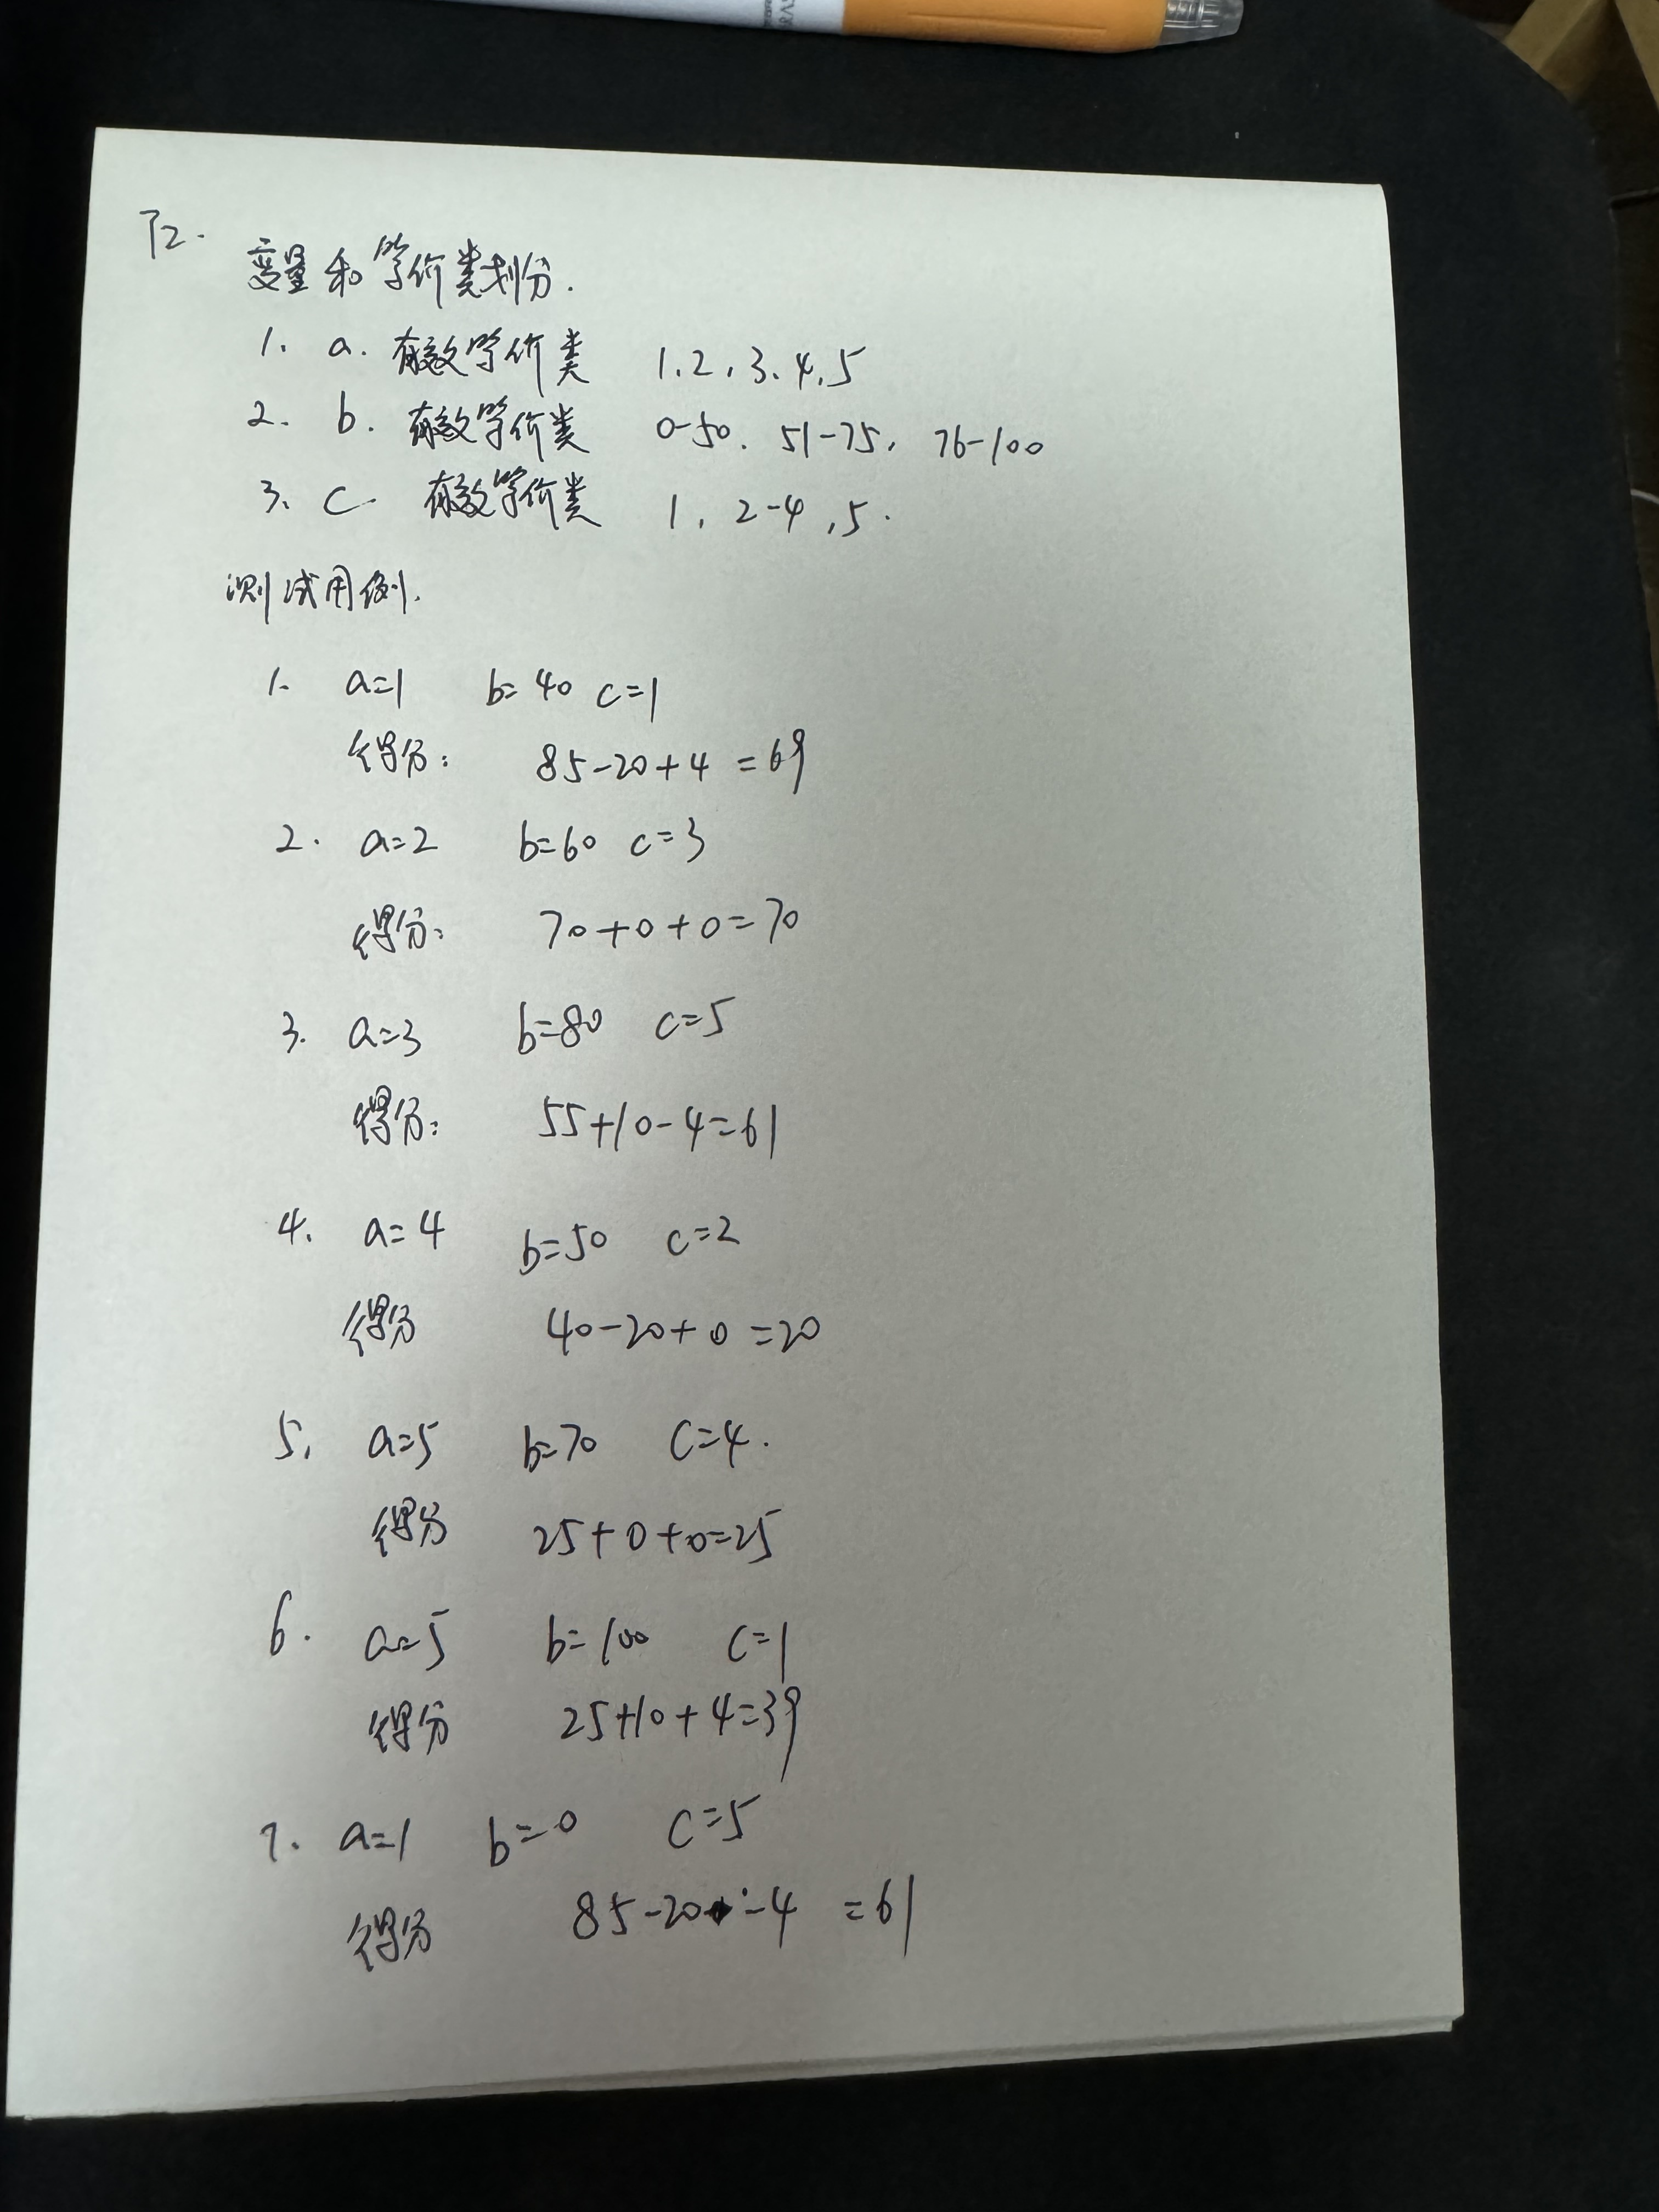 T2.
变量和等价类划分.
1. a. 有效等价类 1、2、3、4、5
2. b. 有效等价类 0-50、51-75、76-100
3. c 有效等价类 1, 2-4, 5.
测试用例.
1. a=1 b=40 c=1
得分: 85-20+4=69
2. a=2 b=60 c=3
得分: 70+0+0=70
3. a=3 b=80 c=5
得分: 55+10-4=61
4. a=4 b=50 c=2
得分 40-20+0=20
5. a=5 b=70 c=4.
得分 25+0+0=25
6. a=5 b=100 c=1
得分 25+10+4=39
7. a=1 b=0 c=5
得分 85-20-4=61